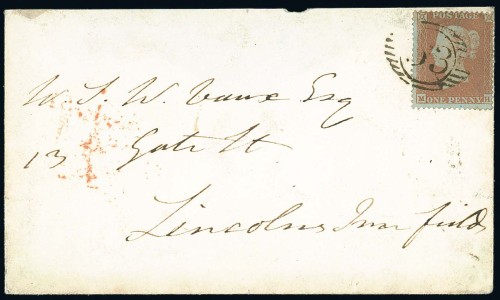 POSTAGE
ONE PENNY
W. S. W. Vaux Esq
13 Gate St
Lincolns Inn fields